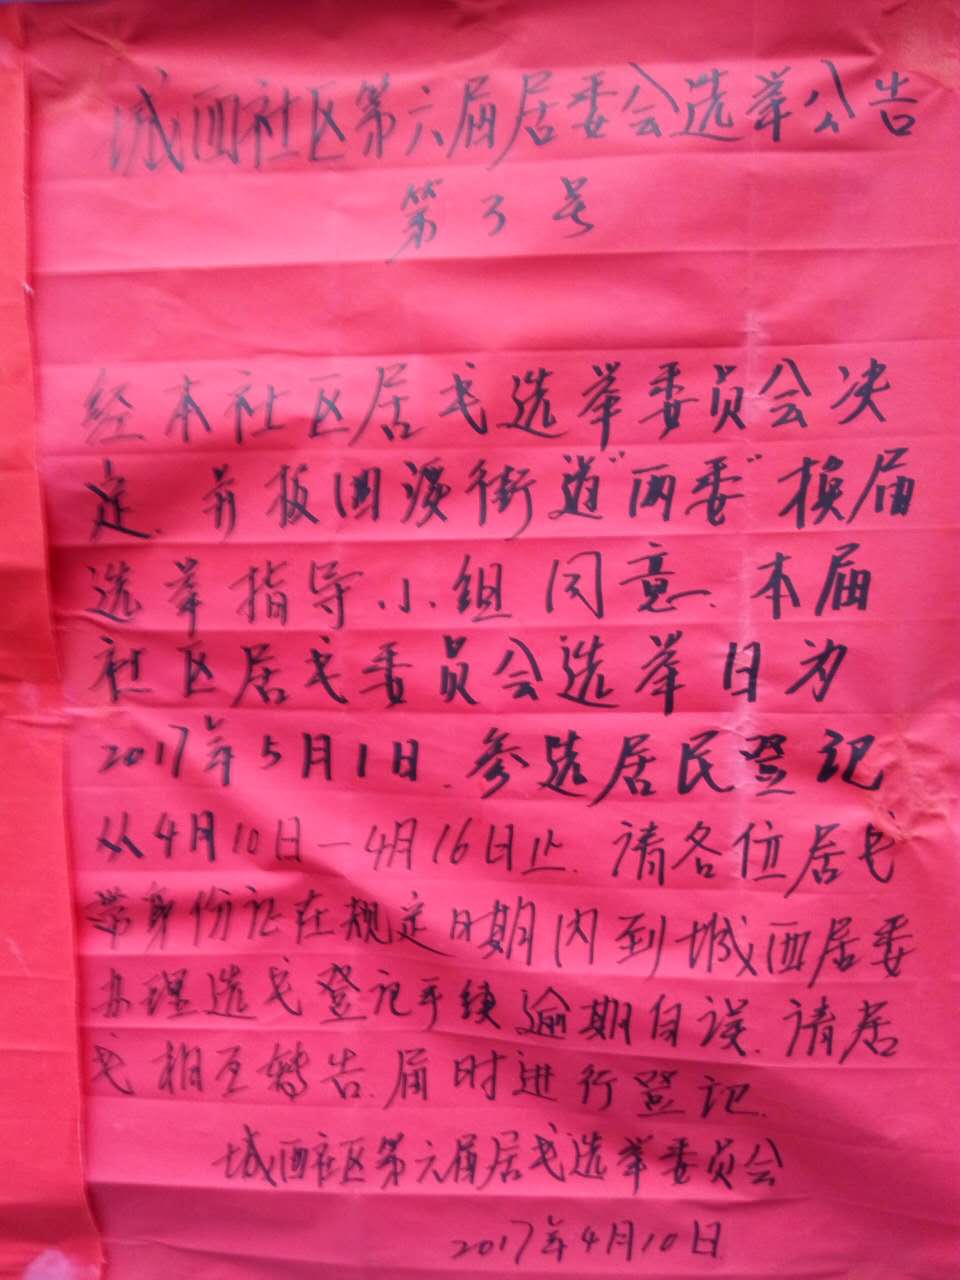 城西社区第六届居委会选举公告
第3号
经本社区居民选举委员会决
定.并报回溪街道"两委"换届
选举指导小组同意.本届
社区居民委员会选举日为
2017年5月1日.参选居民登记
从4月10日—4月16日止.请各位居民
带身份证在规定日期内到城西居委
办理选民登记手续逾期自误.请居
民相互转告.届时进行登记.
城西社区第六届居民选举委员会
2017年4月10日